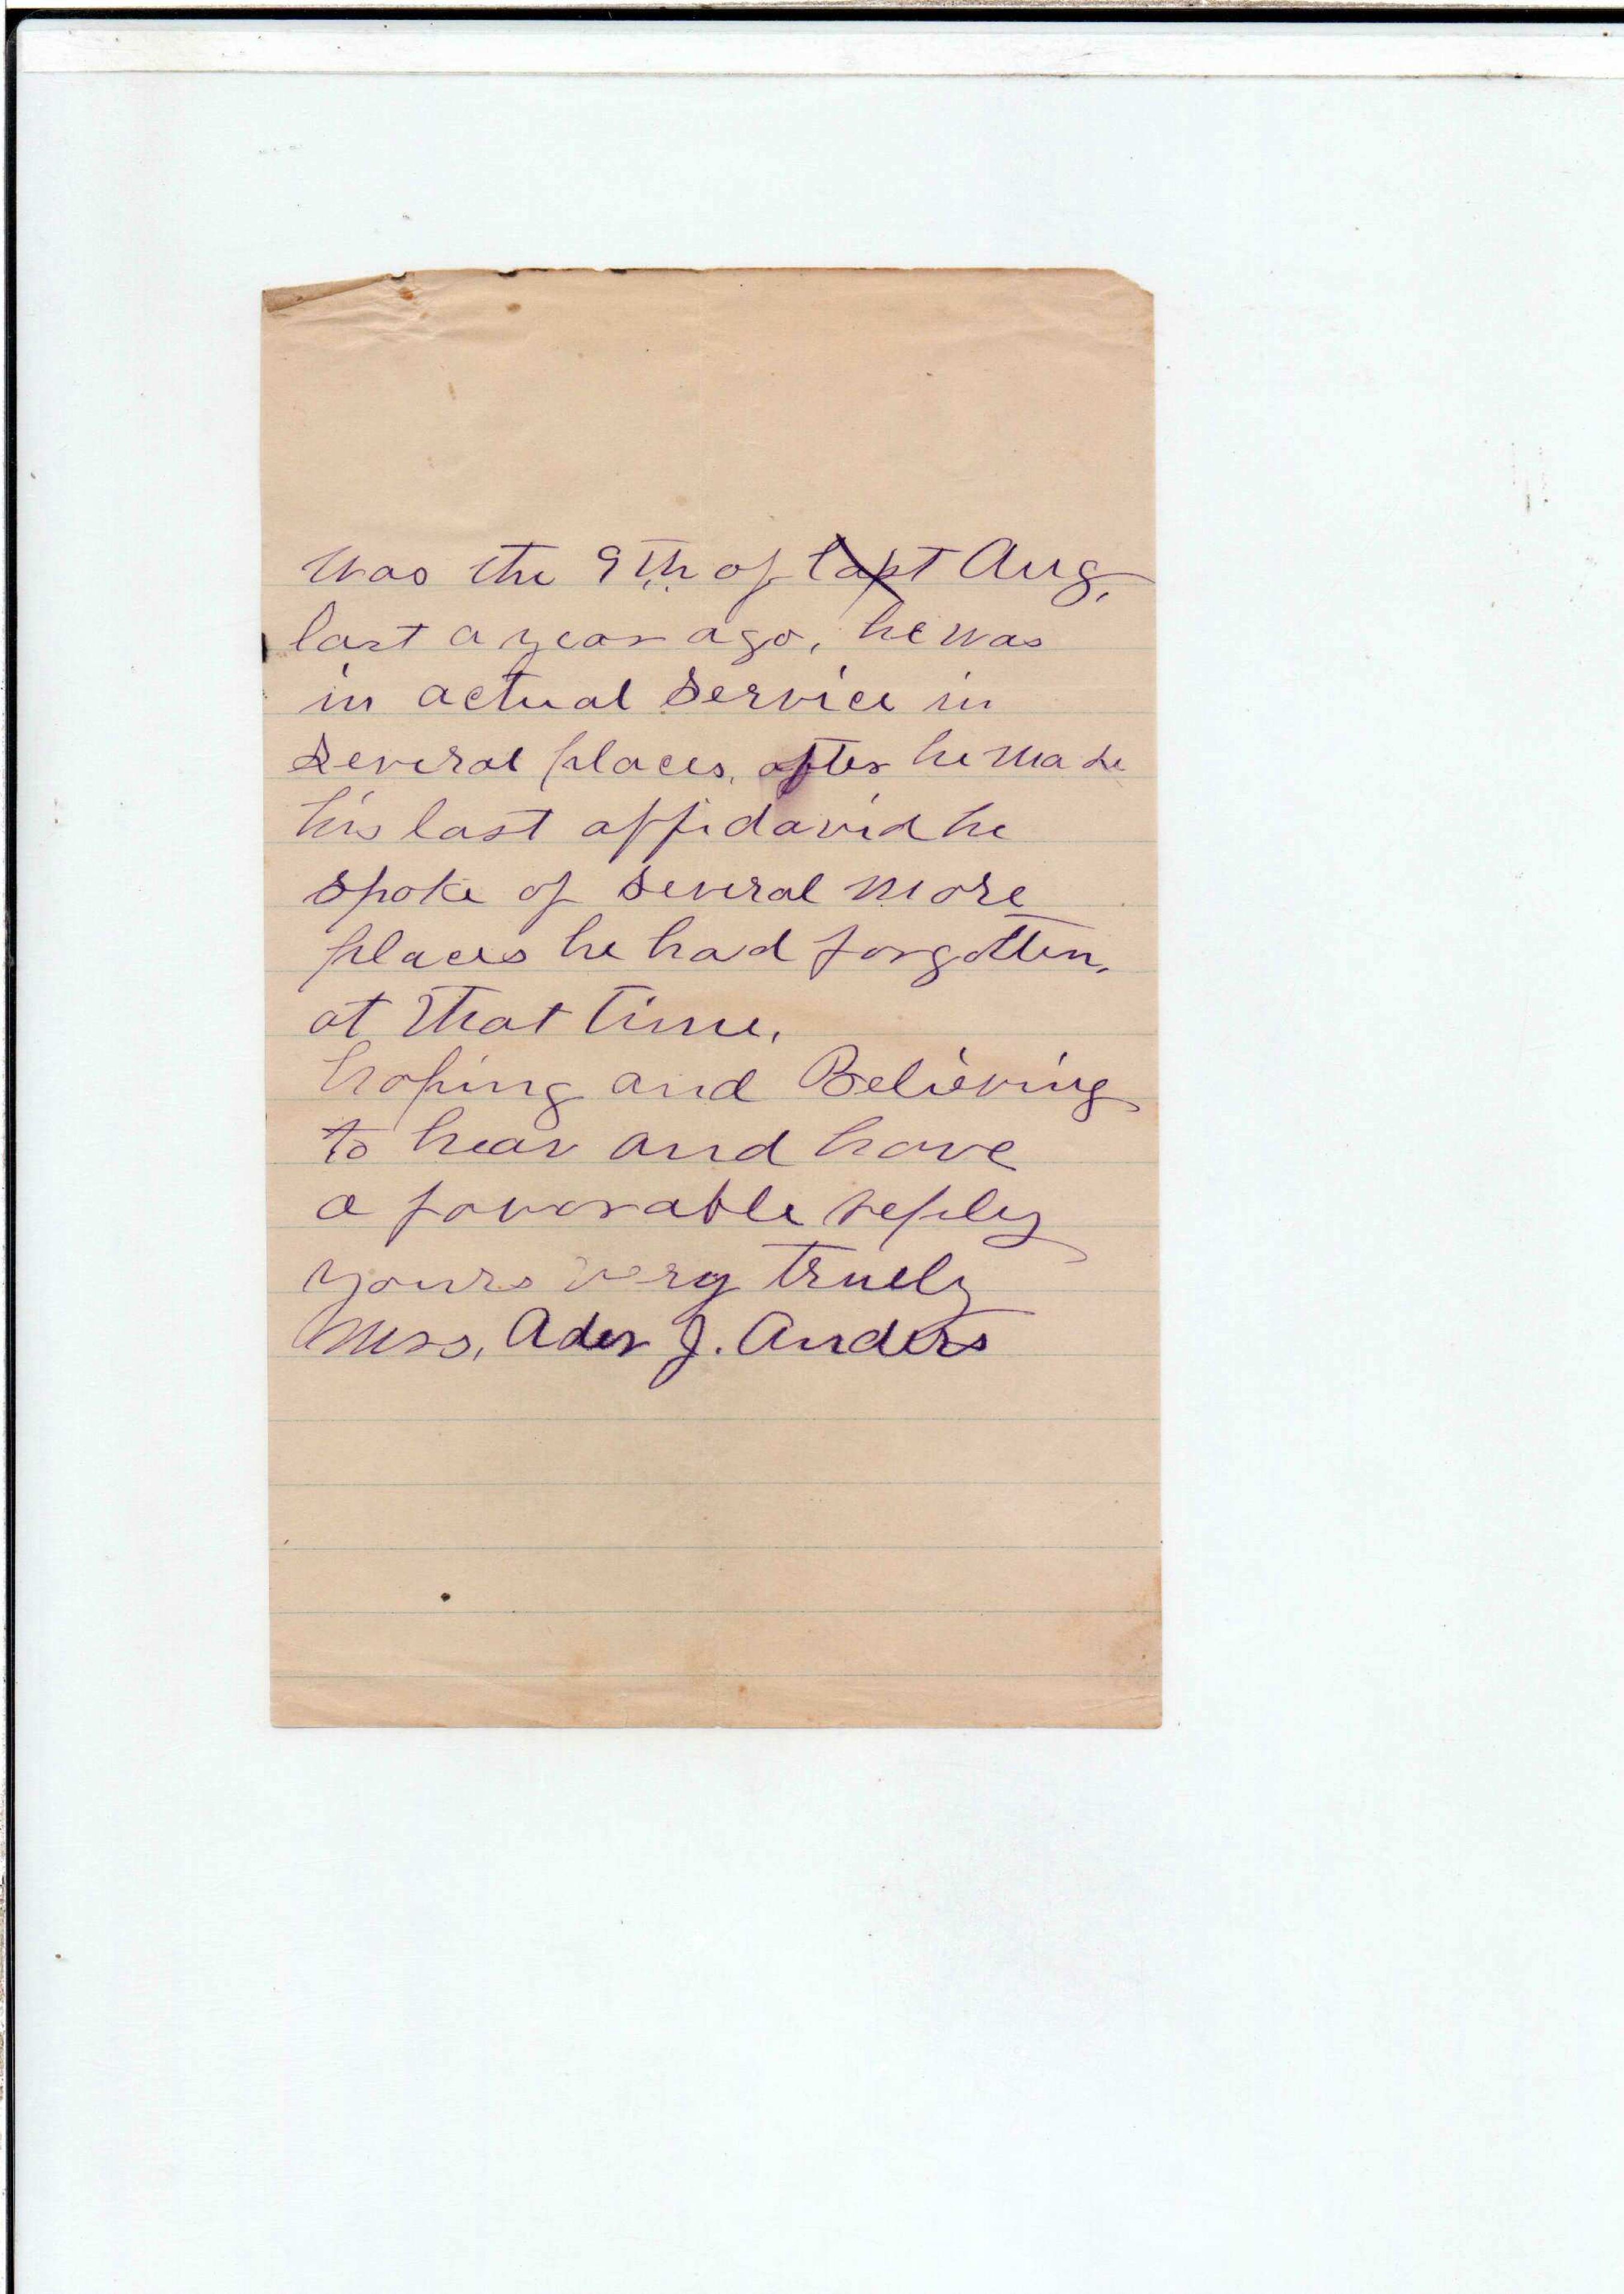 Was the 9th of last Aug,
last a year ago, he was
in actual service in
several places, after he made
his last affidavid he
spoke of several more
places he had forgotten,
at that time,
hoping and Believing
to hear and have
a favorable reply
yours very truely
Mrs, Ader J. Anders